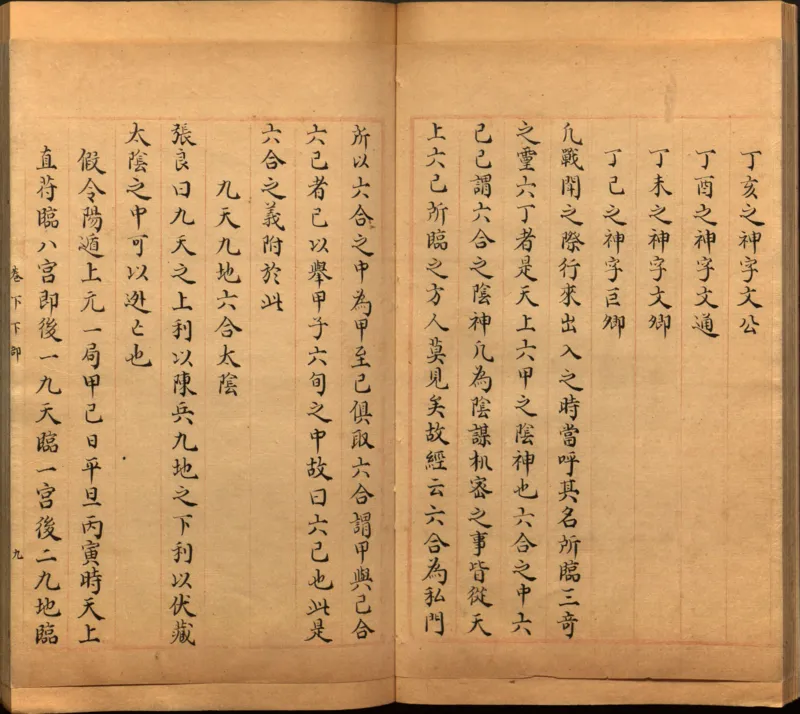 丁亥之神字文公
丁酉之神字文通
丁未之神字文卿
丁已之神字巨卿
凢戰閗之際行來出入之時當呼其名所臨三竒
之靈六丁者是天上六甲之陰神也六合之中六
己己謂六合之陰神凢為陰謀机宻之事皆從天
上六己所臨之方人莫見矣故經云六合為私門
所以六合之中為甲至己俱取六合謂甲與己合
六己者已以舉甲子六旬之中故曰六己也此是
六合之義附於此
九天九地六合太陰
張良曰九天之上利以陳兵九地之下利以伏藏
太陰之中可以迯亡也
假令陽遁上元一局甲己日平旦丙寅時天上
直苻臨八宫即後一九天臨一宫後二九地臨
卷下下卽
九